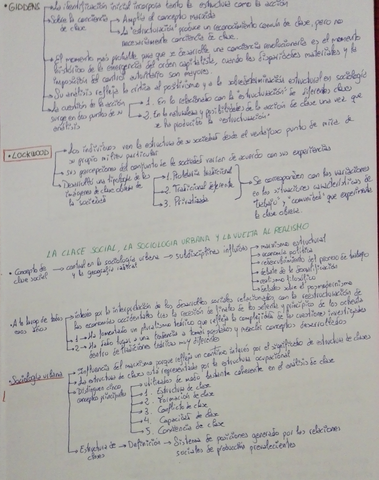 • GIDDENS → La identificación inicial incorpora tanto la estructura como la acción
→ Sobre la conciencia de clase → Amplió el concepto marxista
→ La "estructuración" produce un reconocimiento común de clase, pero no necesariamente conciencia de clase
→ El momento más probable para que se desarrolle una conciencia revolucionaria es el momento histórico de la emergencia del orden capitalista, cuando las disparidades materiales y la del control autoritario son mayores
→ Su análisis refleja la crítica al positivismo y a la sobredeterminación estructural en sociología
→ La cuestión de la acción surge en dos puntos de su análisis → 1. En lo relacionado con la "estructuración" de diferentes clases
→ 2. En la naturaleza y posibilidades de la acción de clase una vez que se ha producido la "estructuración"
• LOCKWOOD → Los individuos ven la estructura de su sociedad desde el ventajoso punto de mira de su propio mitro particular
→ Sus percepciones del conjunto de la sociedad varían de acuerdo con sus experiencias
→ Desarrolla una tipología de las imágenes de clase obrera de la sociedad → 1. Proletario tradicional
→ 2. Tradicional deferente
→ 3. Privatizada
→ Se corresponden con las variaciones en las situaciones características de "trabajo" y "comunidad" que experimenta la clase obrera.
LA CLASE SOCIAL, LA SOCIOLOGÍA URBANA Y LA VUELTA AL REALISMO
• Concepto de clase social → central en la sociología urbana y la geografía radical → subdisciplinas reflejan → marxismo estructural
→ economía política
→ redescubrimiento del proceso de trabajo
→ debate de la descualificación
→ realismo
→ debates sobre el posmodernismo
• A lo largo de todos esos años → interés por la interpretación de los desarrollos sociales relacionados con la reestructuración de las economías occidentales (con la recesión de finales de los setenta y principios de los ochenta
→ Ha fomentado un pluralismo teórico que refleja la complejidad de las cuestiones investigadas
→ Ha dado lugar a una tendencia a tomar prestados y mezclar conceptos desarrollados dentro de tradiciones teóricas muy diferentes
• Sociología urbana → Influencia del marxismo porque refleja un continuo interés por el significado de estructura de clases
→ La estructura de clases está representada por la estructura ocupacional
→ Distingue cinco conceptos principales → utilizados de modo bastante coherente en el análisis de clase
→ 1. Estructura de clase
→ 2. Formación de clase
→ 3. Conflicto de clase
→ 4. Capacidad de clase
→ 5. Conciencia de clase
→ Estructura de clases → Definición → Sistema de posiciones generado por las relaciones sociales de producción prevalecientes